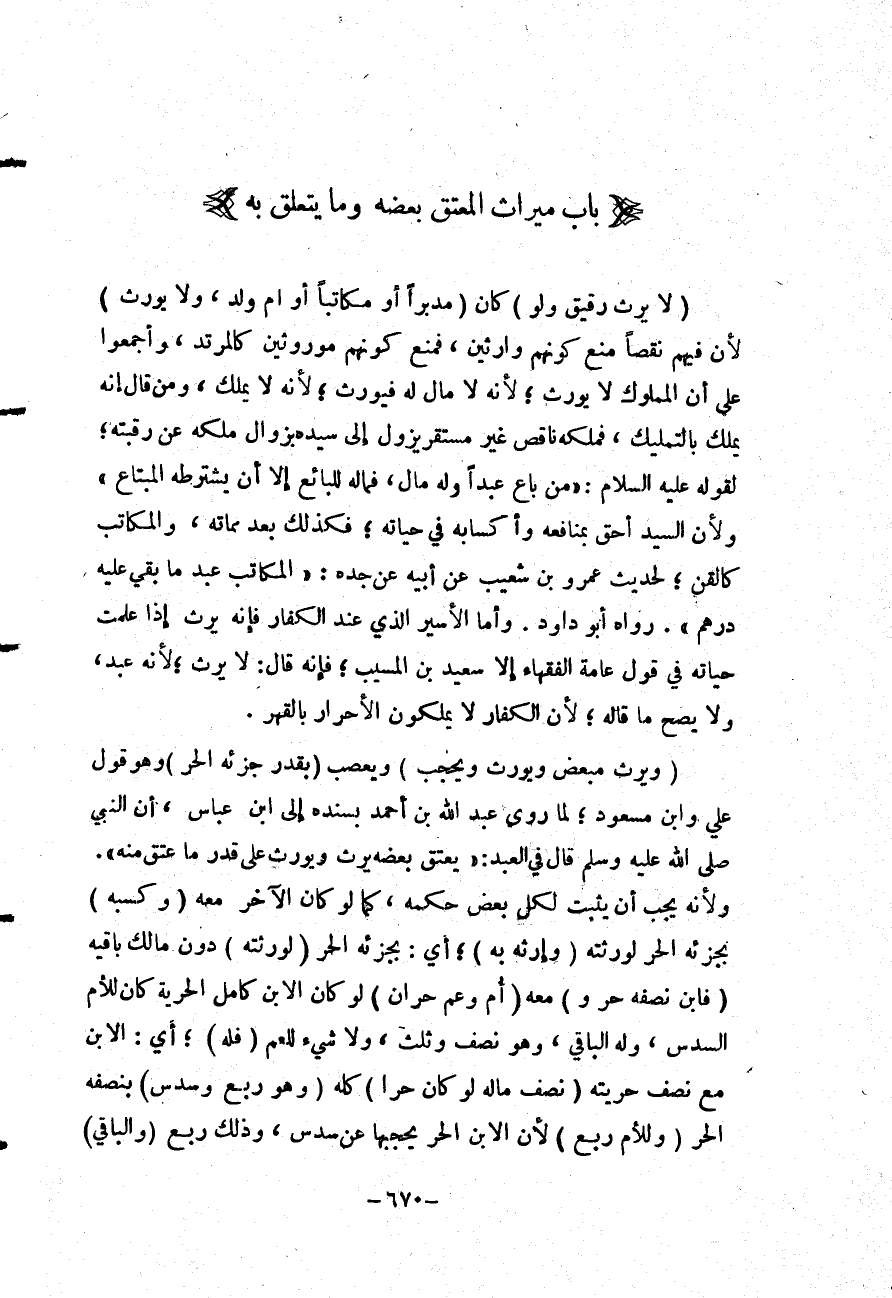 باب ميراث المعتق بعضه وما يتعلق به
( لا يرث رقيق ولو ) كان ( مدبراً أو مكاتباً أو ام ولد ، ولا يورث )
لأن فيهم نقصاً منع كونهم وارثين ، فمنع كونهم موروثين كالمرتد ، وأجمعوا
على أن المملوك لا يورث ؛ لأنه لا مال له فيورث ؛ لأنه لا يملك ، ومن قال إنه
يملك بالتمليك ، فملكه ناقص غير مستقر يزول إلى سيده بزوال ملكه عن رقبته ؛
لقوله عليه السلام : «من باع عبداً وله مال ، فماله للبائع إلا أن يشترطه المبتاع »
ولأن السيد أحق بمنافعه وأكسابه في حياته ؛ فكذلك بعد مماته ، والمكاتب
كالقن ؛ لحديث عمرو بن شعيب عن أبيه عن جده : « المكاتب عبد ما بقي عليه
درهم » . رواه أبو داود . وأما الأسير الذي عند الكفار فإنه يرث إذا علمت
حياته في قول عامة الفقهاء إلا سعيد بن المسيب ؛ فإنه قال : لا يرث ؛ لأنه عبد ،
ولا يصح ما قاله ؛ لأن الكفار لا يملكون الأحرار بالقهر .
( ويرث مبعض ويورث ويحجب ) ويعصب ( بقدر جزئه الحر ) وهو قول
علي وابن مسعود ؛ لما روى عبد الله بن أحمد بسنده إلى ابن عباس ، أن النبي
صلى الله عليه وسلم قال في العبد : « يعتق بعضه يرث ويورث على قدر ما عتق منه» .
ولأنه يجب أن يثبت لكل بعض حكمه ، كما لو كان الآخر معه ( وكسبه )
بجزئه الحر لورثته ( وإرثه به ) ؛ أي : بجزئه الحر ( لورثته ) دون مالك باقيه
( فابن نصفه حر و ) معه ( أم وعم حران ) لو كان الابن كامل الحرية كان للأم
السدس ، وله الباقي ، وهو نصف وثلث ، ولا شيء للعم ( فله ) ؛ أي : الابن
مع نصف حريته ( نصف ماله لو كان حرا ) كله ( وهو ربع وسدس ) بنصفه
الحر ( وللأم ربع ) لأن الابن الحر يحجبها عن سدس ، وذلك ربع ( والباقي )
-٦٧٠-